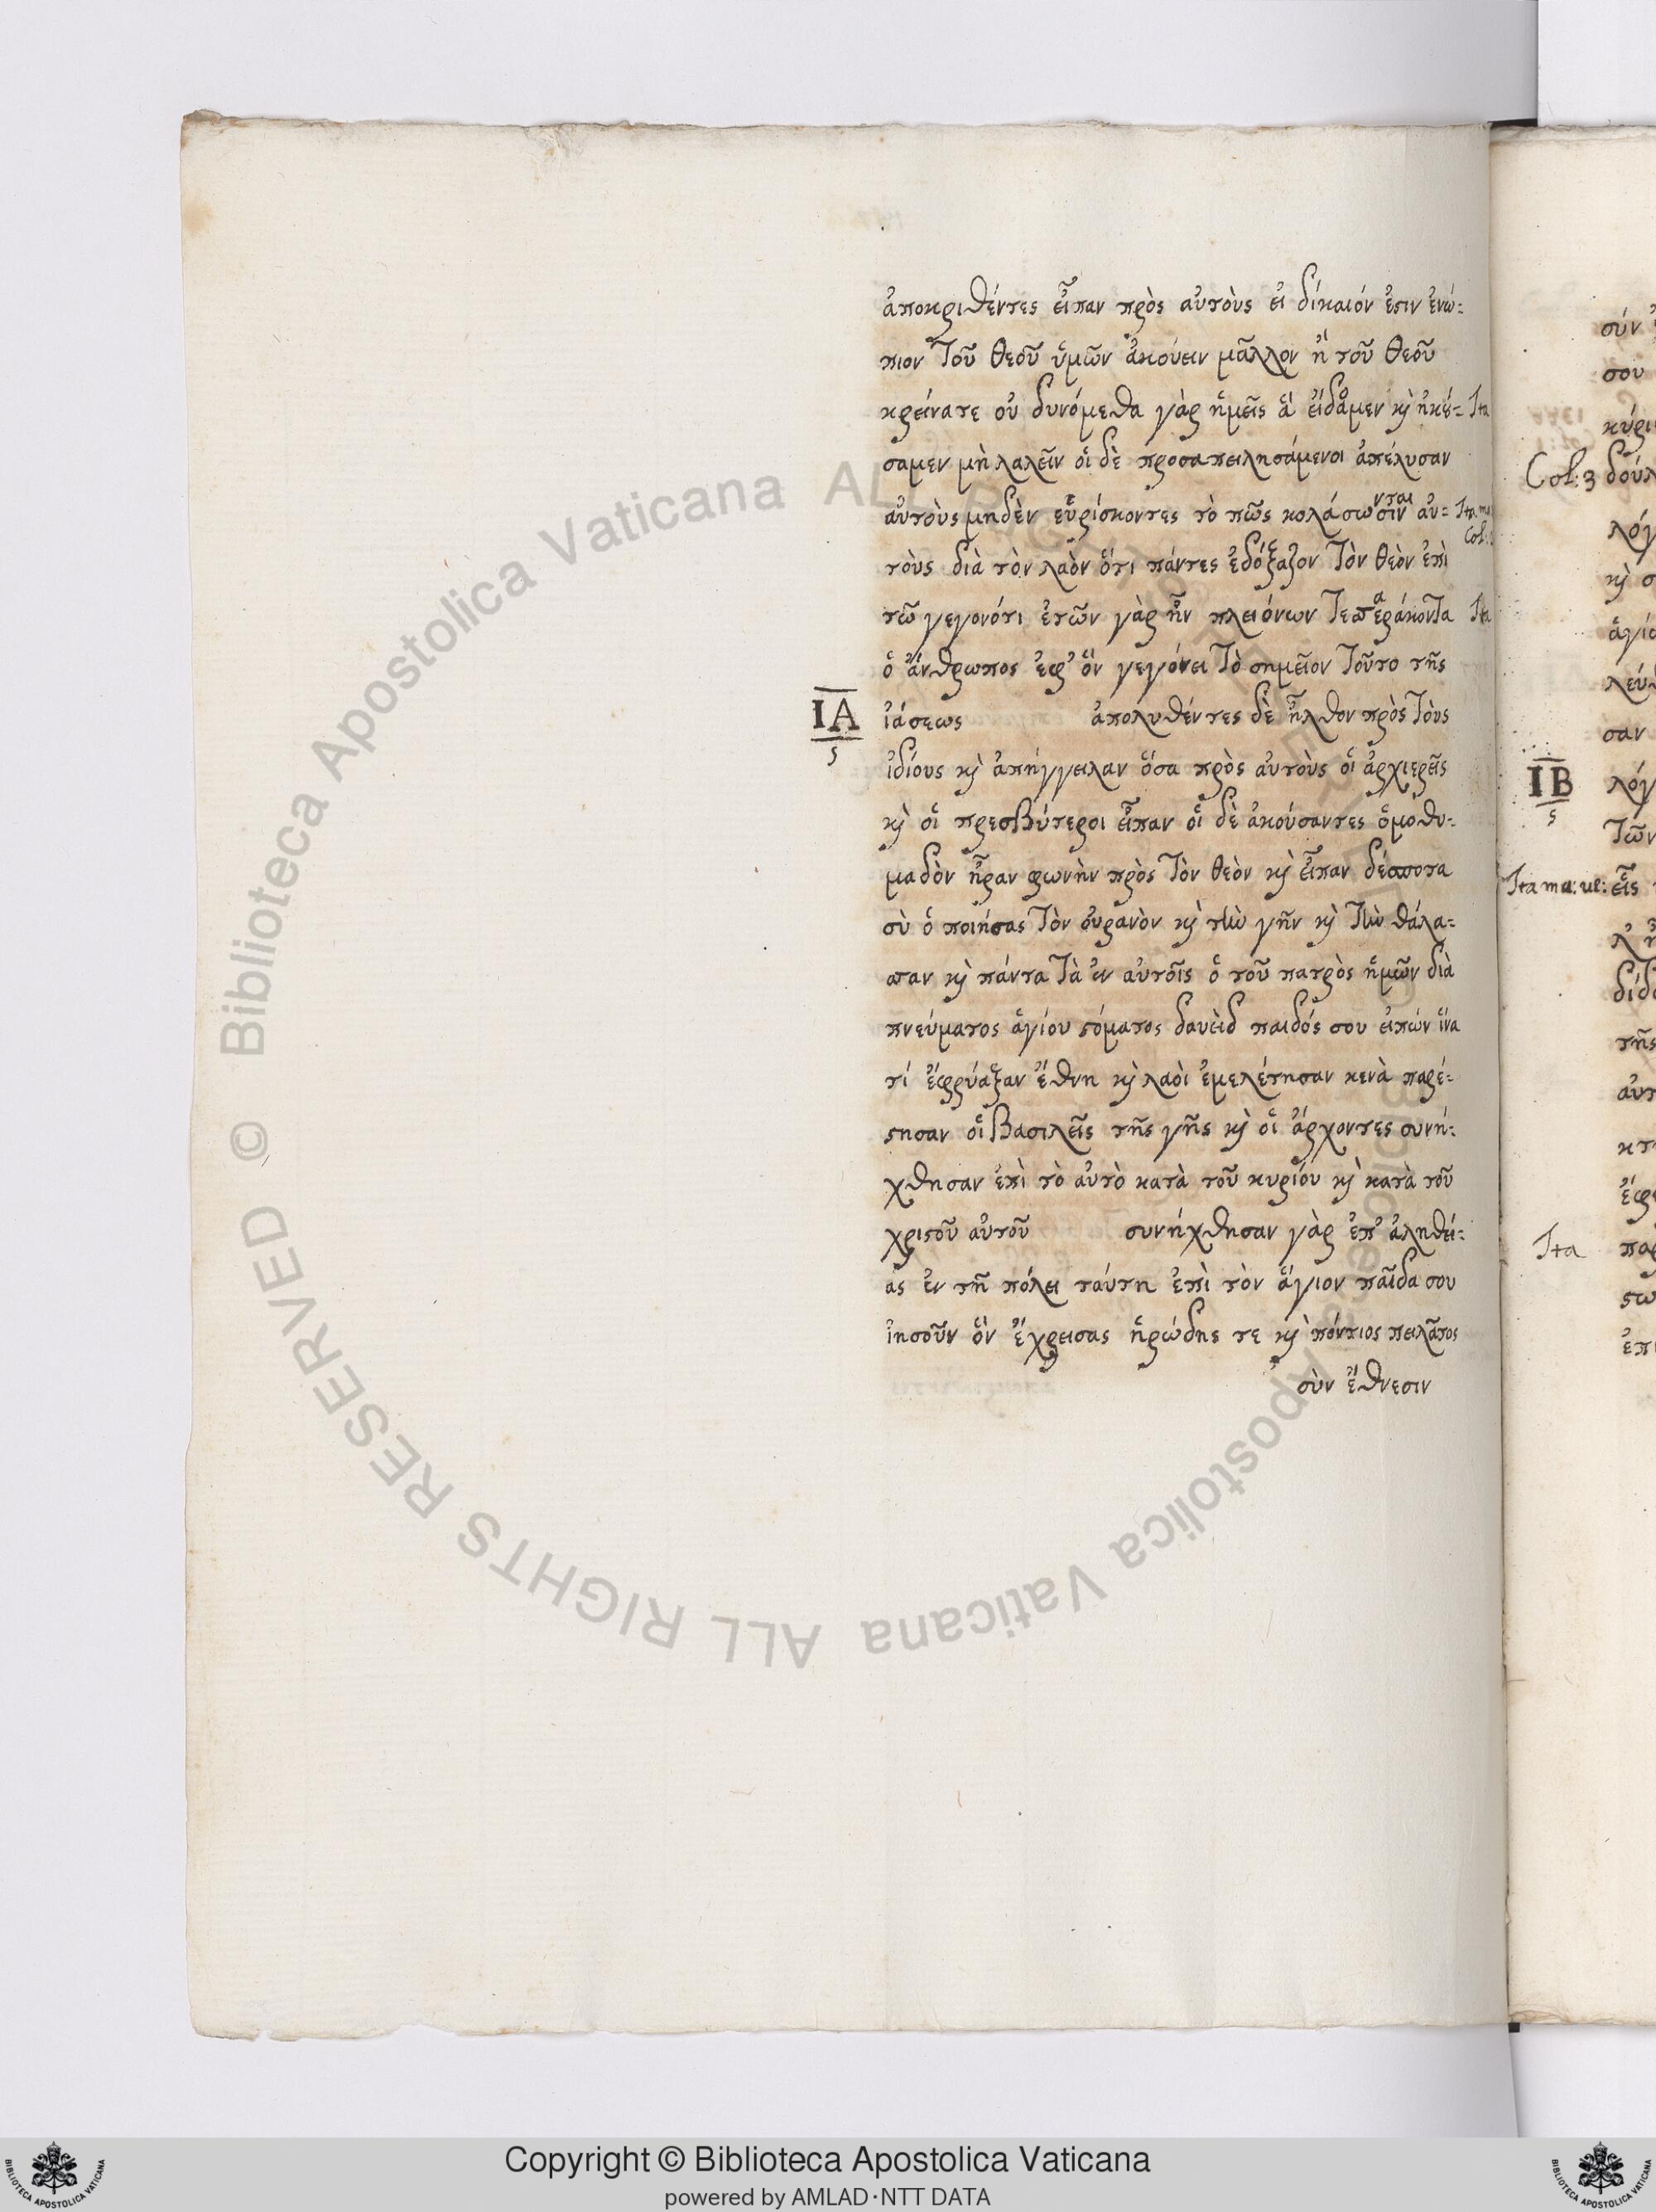 ἀποκριθέντες εἶπαν πρὸς αὐτοὺς εἰ δίκαιόν ἐστιν ἐνώ-
πιον τοῦ θεοῦ ὑμῶν ἀκούειν μᾶλλον ἢ τοῦ θεοῦ
κρείνατε οὐ δυνόμεθα γὰρ ἡμεῖς ἃ εἴδαμεν κὶ ἠκού- Ita
σαμεν μὴ λαλεῖν οἱ δὲ προσαπειλησάμενοι ἀπέλυσαν
αὐτοὺς μηδὲν εὑρίσκοντες τὸ πῶς κολάσωσιν αὐ-
νται
Col:
τοὺς διὰ τὸν λαὸν ὅτι πάντες ἐδόξαζον τὸν θεὸν ἐπὶ
τῶ γεγονότι ἐτῶν γὰρ ἦν πλειόνων τεσσεράκοντα Ita
α
ὁ ἄνθρωπος ἐφ' ὃν γεγόνει τὸ σημεῖον τοῦτο τῆς
ΙΑ ἰάσεως ἀπολυθέντες δὲ ἦλθον πρὸς τοὺς
ς
ἰδίους κὶ ἀπήγγειλαν ὅσα πρὸς αὐτοὺς οἱ ἀρχιερεῖς
κὶ οἱ πρεσβύτεροι εἶπαν οἱ δὲ ἀκούσαντες ὁμόθυ-
μαδὸν ἦραν φωνὴν πρὸς τὸν θεὸν κὶ εἶπαν δέσποτα
σὺ ὁ ποιήσας τὸν οὐρανὸν κὶ τὴν γῆν κὶ τὴν θάλα-
σσαν κὶ πάντα τὰ ἐν αὐτοῖς ὁ τοῦ πατρὸς ἡμῶν διὰ
πνεύματος ἁγίου στόματος δαυεὶδ παιδός σου εἰπών ἵνα
τί ἐφρύαξαν ἔθνη κὶ λαοὶ ἐμελέτησαν κενὰ παρέ-
στησαν οἱ βασιλεῖς τῆς γῆς κὶ οἱ ἄρχοντες συνή-
χθησαν ἐπὶ τὸ αὐτὸ κατὰ τοῦ κυρίου κὶ κατὰ τοῦ
χριστοῦ αὐτοῦ συνήχθησαν γὰρ ἐπ' ἀληθεί-
ας ἐν τῆ πόλει ταύτη ἐπὶ τὸν ἅγιον παῖδα σου
ἰησοῦν ὃν ἔχρεισας ἡρώδης τε κὶ πόντιος πειλᾶτος
σὺν ἔθνεσιν
σύν
σου
Col: 3
ΙΒ
ς
Τῶν
Ita ma: ue: εἷς
τῆς
Ita
© Biblioteca Apostolica Vaticana ALL RIGHTS RESERVED
© Biblioteca Apostolica Vaticana ALL RIGHTS RESERVED
Copyright © Biblioteca Apostolica Vaticana
powered by AMLAD·NTT DATA
BIBLIOTECA APOSTOLICA VATICANA
BIBLIOTECA APOSTOLICA VATICANA